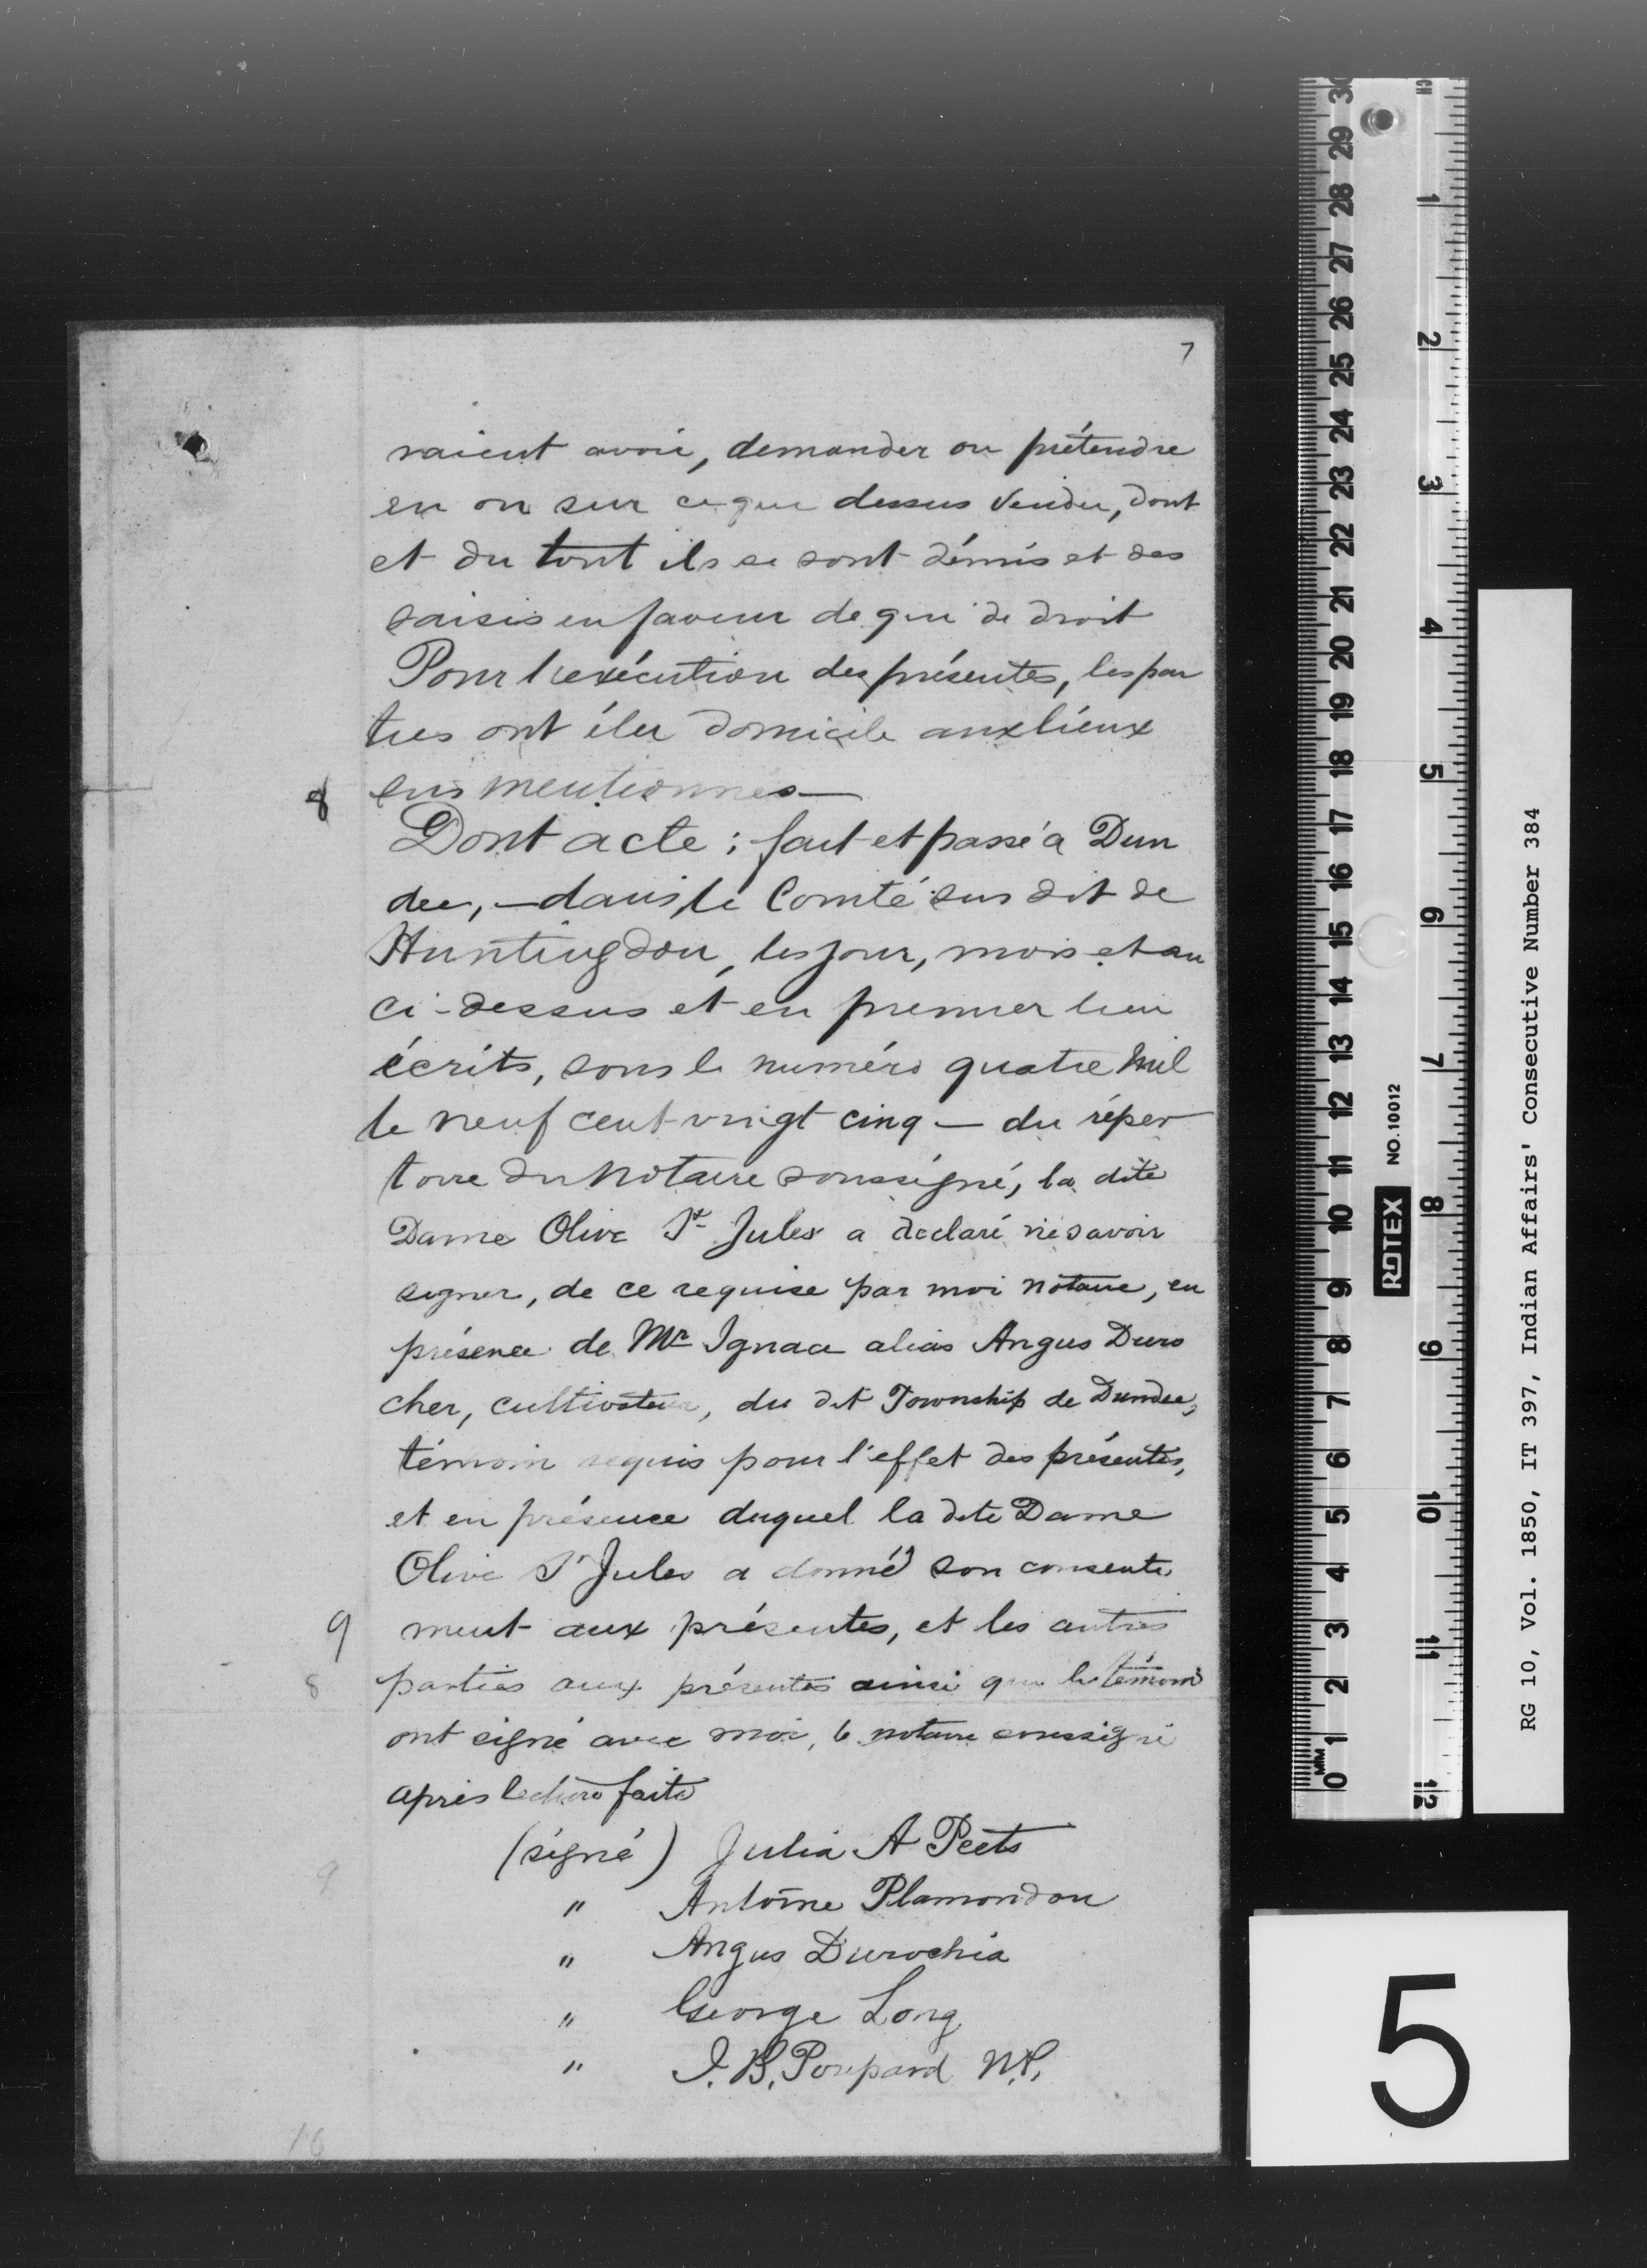 7
raient avoir, demander ou prétendre
en ou sur ce que dessus vendu, dont
et du tout ils se sont démis et des
saisis en faveur de qui de droit
Pour l'exécution des présentes, les par
ties ont élu domicile aux lieux
8 sus mentionnés —
Dont acte ; fait et passé à Dun
dee, — dans le Comté sus dit de
Huntingdon, les jour, mois et an
ci-dessus et en premier lieu
écrits, sous le numéro quatre mil
le neuf cent vingt cinq — du réper
toire du Notaire soussigné, la dite
Dame Olive St Jules a declaré ne savoir
signer, de ce requise par moi notaire, en
présence de Mr Ignace alias Angus Duro
cher, cultivateur, du dit Township de Dundee,
témoin requis pour l'effet des présentes,
et en présence duquel la dite Dame
Olive St Jules a donné son consente
9 ment aux présentes, et les autres
8 parties aux présentes ainsi que le témoin
ont signé avec moi, le notaire soussigné
après lecture faite
(signé) Julia A Peets
9
" Antoine Plamondon
" Angus Durochia
" George Long
" I. B. Poupard N.P.
16
RG 10, Vol. 1850, IT 397, Indian Affairs' Consecutive Number 384
5
ROTEX NO.10012
MM 0 1 2 3 4 5 6 7 8 9 10 11 12 13 14 15 16 17 18 19 20 21 22 23 24 25 26 27 28 29 30
1 2 3 4 5 6 7 8 9 10 11 12